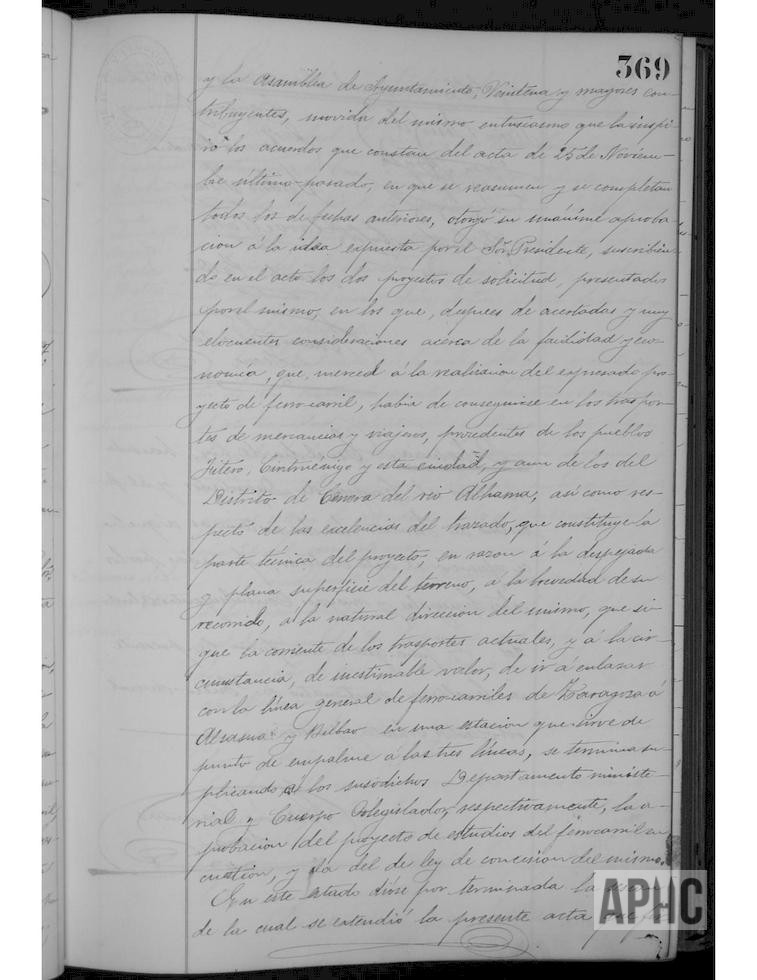 369
y la Asamblea de Ayuntamiento, Veintena y mayores con-
tribuyentes, movida del mismo entusiasmo que la inspi-
ró los acuerdos que constan del acta de 25 de Noviem-
bre último pasado, en que se reasumen y se completan
todos los de fechas anteriores, otorgó su unánime aproba-
cion á la idea expuesta por el Sor. Presidente, suscribien-
do en el acto los dos proyectos de solicitud, presentados
por el mismo, en los que, despues de acertadas y muy
elocuentes consideraciones acerca de la facilidad y eco-
nomía, que, merced á la realizacion del expresado pro-
yecto de ferro-carril, habia de conseguirse en los traspor-
tes de mercancias y viajeros, procedentes de los pueblos
Fitero, Cintruénigo y esta ciudad, y aun de los del
Distrito de Cervera del rio Alhama, así como res-
pecto de las excelencias del trazado, que constituye la
parte técnica del proyecto, en razon á la despejada
y plana superficie del terreno, á la brevedad de su
recorrido, á la natural direccion del mismo, que si-
gue la corriente de los trasportes actuales, y á la cir-
cunstancia, de inestimable valor, de ir á enlazar
con la línea general de ferro-carriles de Zaragoza á
Alsasua y Bilbao en una estacion que sirve de
punto de empalme á las tres líneas, se termina su-
plicando á los susodichos Departamento ministe-
rial y Cuerpo Colegislador, respectivamente, la a-
probacion del proyecto de estudios del ferrocarril en
cuestion, y la del de ley de concesion del mismo.
En este estado dióse por terminada la sesion
de la cual se extendió la presente acta que
APHC